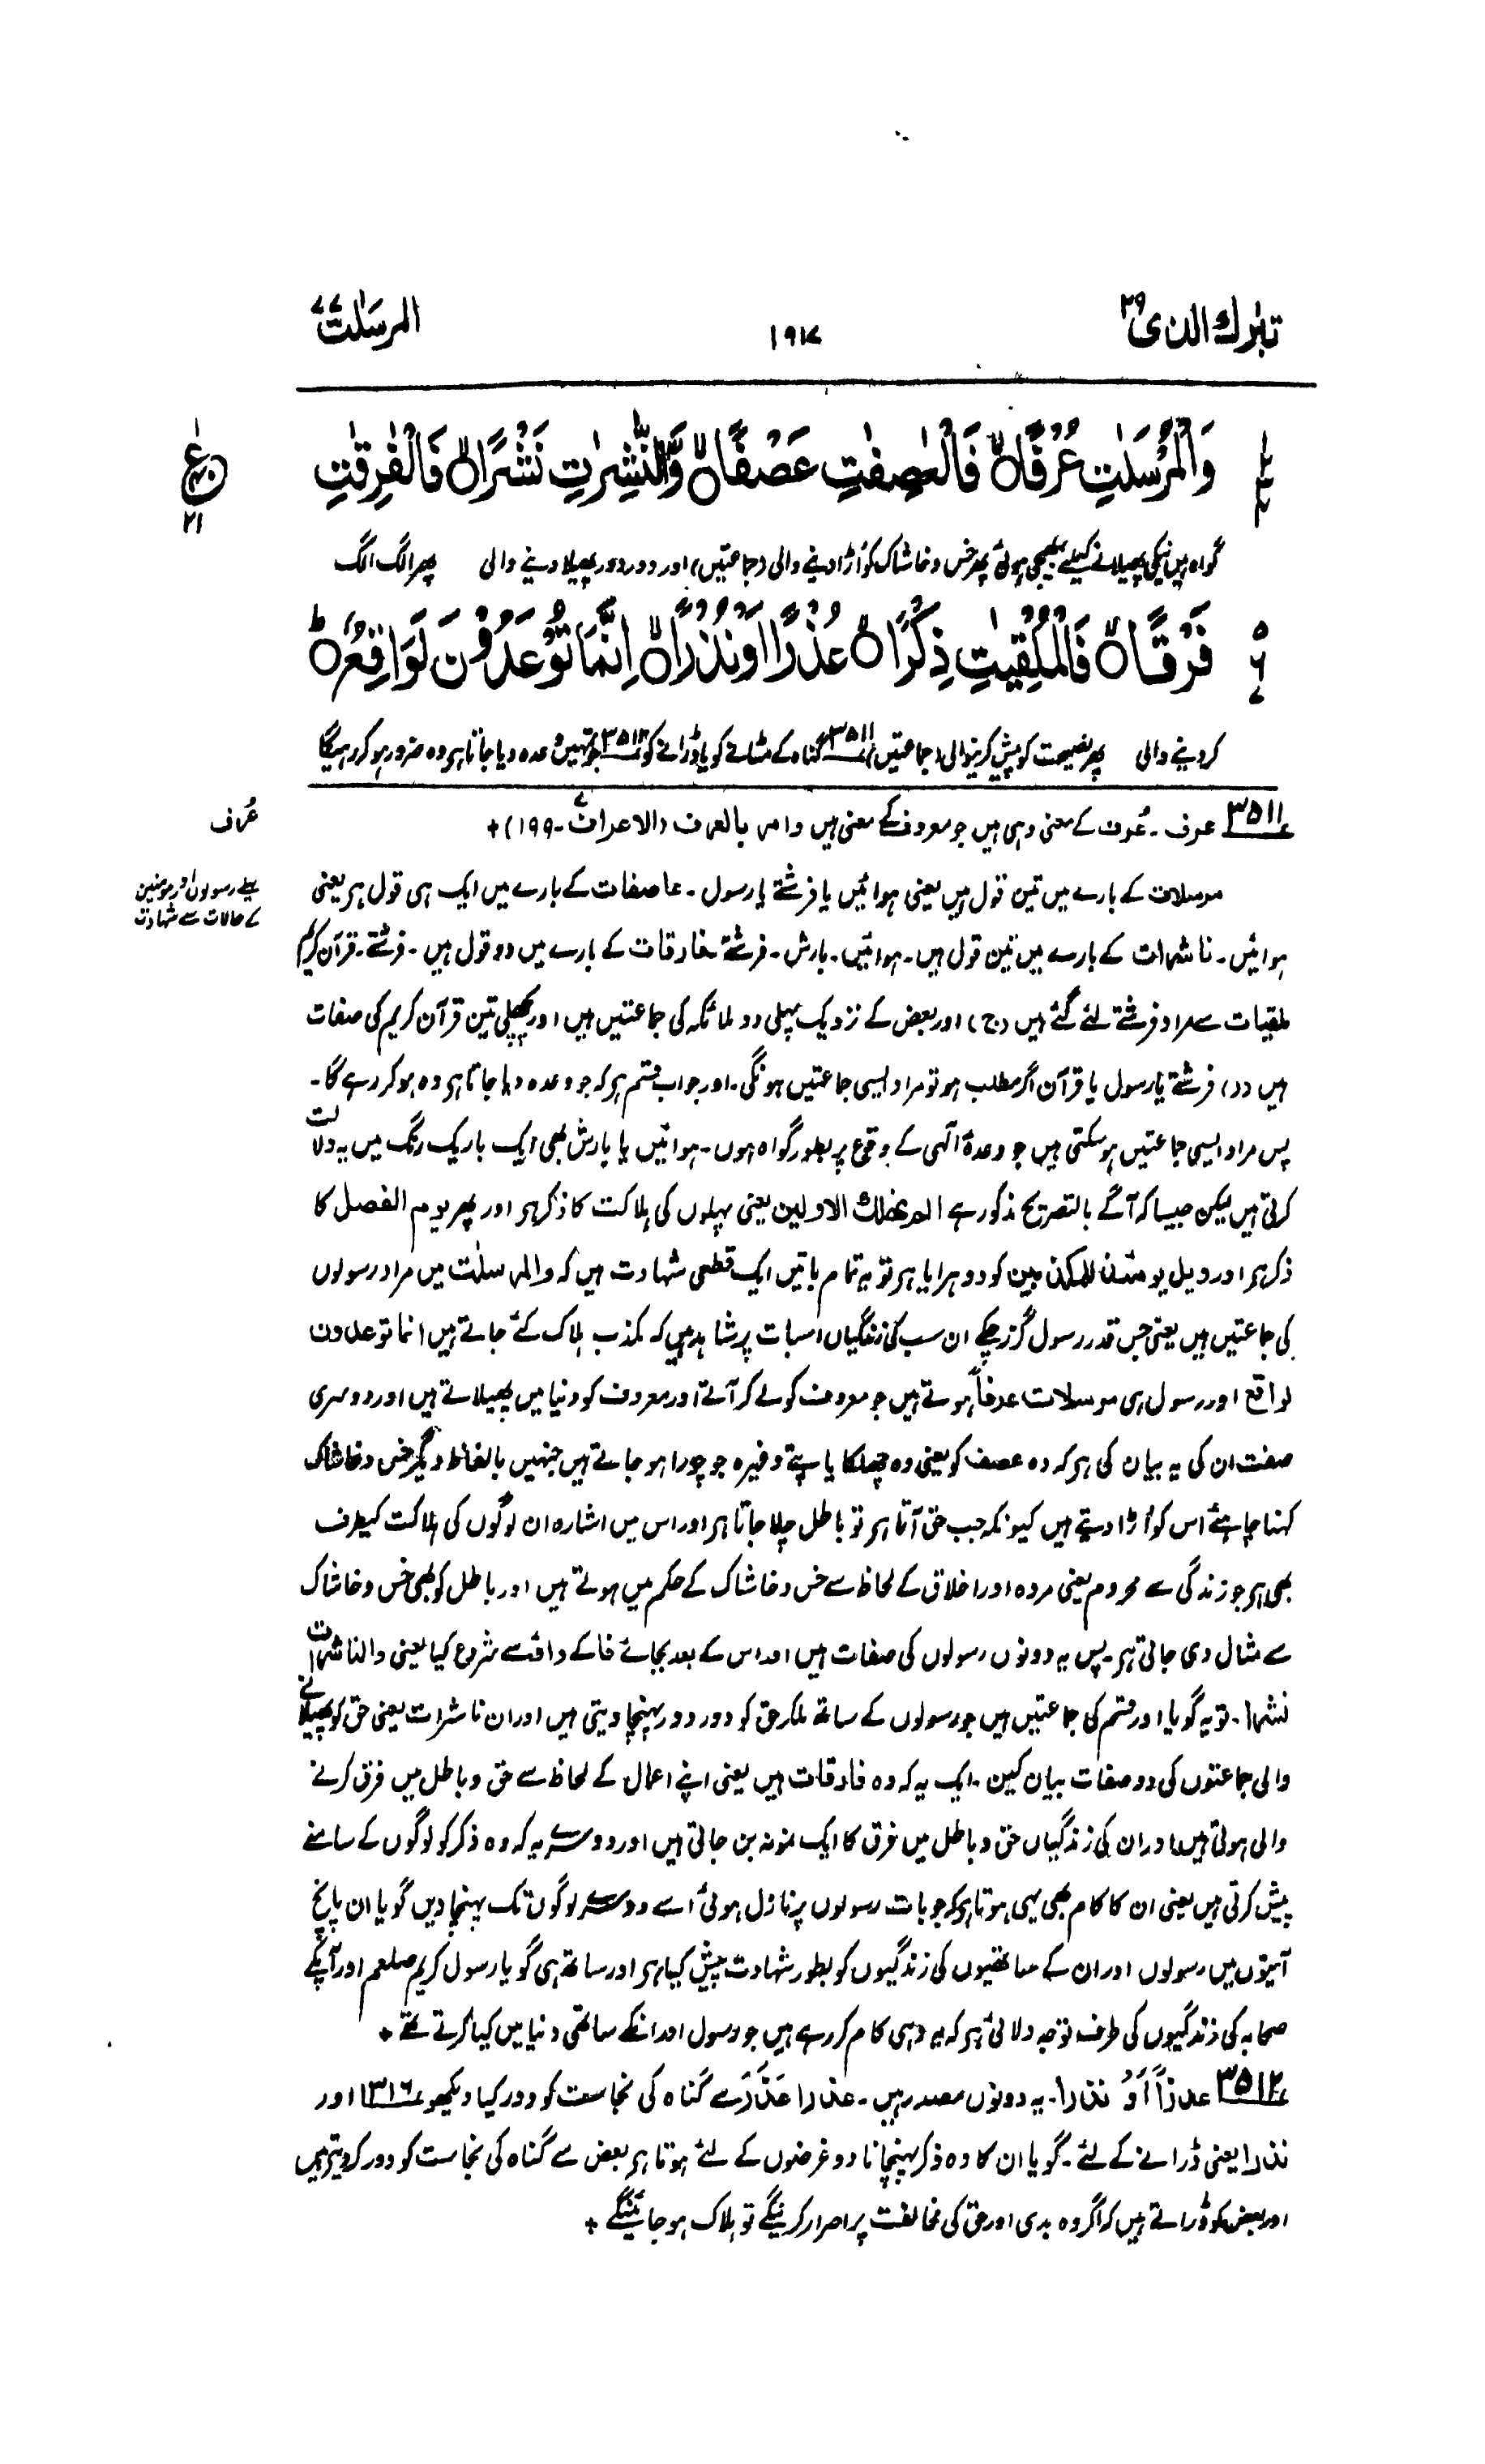 تبٰرك الذی ۲۹
۱۹۱۷
المرسَلٰت ۷۷
وَالْمُرْسَلٰتِ عُرْفًا ۙ فَالْعٰصِفٰتِ عَصْفًا ۙ وَّالنّٰشِرٰتِ نَشْرًا ۙ فَالْفٰرِقٰتِ
ع
۲۱
گواہ ہیں نیکی پھیلانے کیلئے بھیجی ہوئی پھر خس و خاشاک کو اُڑا دینے والی (جماعتیں) اور دور دور پھیلا دینے والی پھر الگ الگ
فَرْقًا ۙ فَالْمُلْقِیٰتِ ذِكْرًا ۙ عُذْرًا اَوْ نُذْرًا ۙ اِنَّمَا تُوْعَدُوْنَ لَوَاقِعٌ ؕ
۵ ۶ ۷
کر دینے والی پھر نصیحت کو پیش کرنیوالی (جماعتیں) ۳۵۱۱ گناہ کے مٹانے کو یا ڈرانے کو ۳۵۱۲ جو تمہیں وعدہ دیا جاتا ہے وہ ضرور ہو کر رہیگا
۳۵۱۱ عرف ۔ عُرف کے معنی وہی ہیں جو معروف کے معنی ہیں وامر بالعرف (الاعراف ۷۔۱۹۹) +
عُرف
مرسلات کے بارے میں تین قول ہیں یعنی ہوائیں یا فرشتے یا رسول ۔ عاصفات کے بارے میں ایک ہی قول ہے یعنی
پہلے رسولوں اور مومنین
کے حالات سے شہادت
ہوائیں ۔ ناشرات کے بارے میں تین قول ہیں ۔ ہوائیں ۔ بارش ۔ فرشتے ۔ فارقات کے بارے میں دو قول ہیں ۔ فرشتے ۔ قرآن کریم
ملقیات سے مراد فرشتے لئے گئے ہیں (ج) اور بعض کے نزدیک پہلی دو ملائکہ کی جماعتیں ہیں اور پچھلی تین قرآن کریم کی صفات
ہیں (د) فرشتے یا رسول یا قرآن اگر مطلب ہو تو مراد ایسی جماعتیں ہونگی ۔ اور جواب قسم ہے کہ جو وعدہ دیا جاتا ہے وہ ہو کر رہے گا ۔
پس مراد ایسی جماعتیں ہو سکتی ہیں جو وعدۂ الٰہی کے وقوع پر بطور گواہ ہوں ۔ ہوائیں یا بارش بھی ایک باریک رنگ میں یہ دلالت
کرتی ہیں لیکن جیسا کہ آگے بالتصریح مذکور ہے الم نھلك الاولین یعنی پہلوں کی ہلاکت کا ذکر ہے اور پھر یوم الفصل کا
ذکر ہے اور ویل یومئذ للمکذبین کو دوہرایا ہے تو یہ تمام باتیں ایک قطعی شہادت ہیں کہ والمرسلٰت میں مراد رسولوں
کی جماعتیں ہیں یعنی جس قدر رسول گزر چکے ان سب کی زندگیاں اسبات پر شاہد ہیں کہ مکذب ہلاک کئے جاتے ہیں انما توعدون
لواقع اور رسول ہی مرسلات عرفاً ہوتے ہیں جو معروف کو لے کر آتے اور معروف کو دنیا میں پھیلاتے ہیں اور دوسری
صفت ان کی یہ بیان کی ہے کہ وہ عصف کو یعنی وہ چھلکا یا پتے وغیرہ جو چورا ہو جاتے ہیں جنہیں بالفاظ دیگر خس و خاشاک
کہنا چاہئے اس کو اُڑا دیتے ہیں کیونکہ جب حق آتا ہے تو باطل چلا جاتا ہے اور اس میں اشارہ ان لوگوں کی ہلاکت کیطرف
بھی ہے جو زندگی سے محروم یعنی مردہ اور اخلاق کے لحاظ سے خس و خاشاک کے حکم میں ہوتے ہیں اور باطل کو بھی خس و خاشاک
سے مثال دی جاتی ہے ۔ پس یہ دونوں رسولوں کی صفات ہیں اور اس کے بعد بجائے فا کے واؤ سے شروع کیا یعنی والناشرات
نشرا ۔ تو یہ گویا اور قسم کی جماعتیں ہیں جو رسولوں کے ساتھ ملکر حق کو دور دور پہنچا دیتی ہیں اور ان ناشرات یعنی حق کو پھیلانے
والی جماعتوں کی دو صفات بیان کیں ۔ ایک یہ کہ وہ فارقات ہیں یعنی اپنے اعمال کے لحاظ سے حق و باطل میں فرق کرنے
والی ہوتی ہیں اور ان کی زندگیاں حق و باطل میں فرق کا ایک نمونہ بن جاتی ہیں اور دوسرے یہ کہ وہ ذکر کو لوگوں کے سامنے
پیش کرتی ہیں یعنی ان کا کام بھی یہی ہوتا ہے کہ جو بات رسولوں پر نازل ہوئی اسے دوسرے لوگوں تک پہنچا دیں گویا ان پانچ
آیتوں میں رسولوں اور ان کے ساتھیوں کی زندگیوں کو بطور شہادت پیش کیا ہے اور ساتھ ہی گویا رسول کریم صلعم اور آپکے
صحابہ کی زندگیوں کی طرف توجہ دلائی ہے کہ یہ وہی کام کر رہے ہیں جو رسول اور انکے ساتھی دنیا میں کیا کرتے تھے +
۳۵۱۲ عذراً اَوْ نذرا ۔ یہ دونوں مصدر ہیں ۔ عذرا عَذَرَ سے گناہ کی نجاست کو دور کیا دیکھو ۱۳۱۶ اور
نذرا یعنی ڈرانے کے لئے ۔ گویا ان کا وہ ذکر پہنچانا دو غرضوں کے لئے ہوتا ہے بعض سے گناہ کی نجاست کو دور کر دیتے ہیں
اور بعض کو ڈراتے ہیں کہ اگر وہ بدی اور حق کی مخالفت پر اصرار کرینگے تو ہلاک ہو جائینگے +